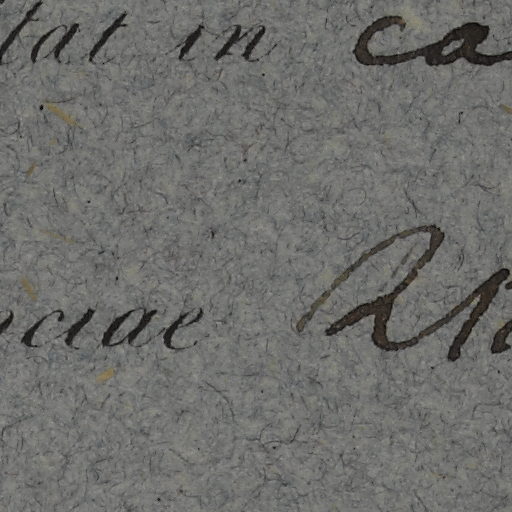 tat in ca
ociae